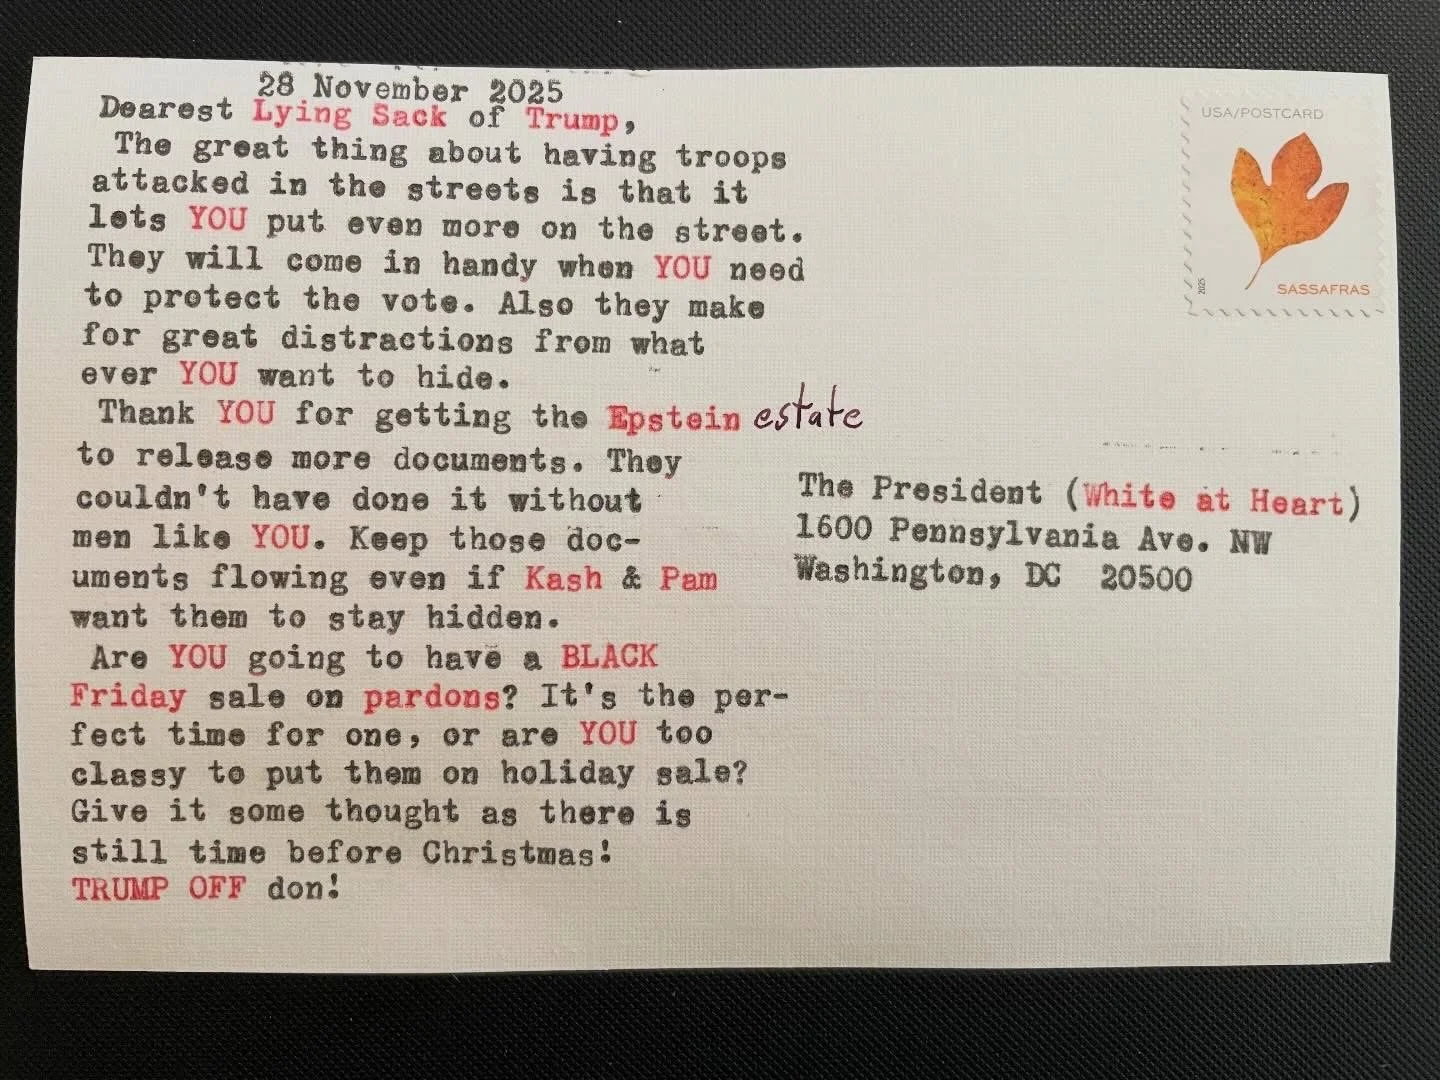 28 November 2025
Dearest Lying Sack of Trump,
The great thing about having troops
attacked in the streets is that it
lets YOU put even more on the street.
They will come in handy when YOU need
to protect the vote. Also they make
for great distractions from what
ever YOU want to hide.
Thank YOU for getting the Epstein estate
to release more documents. They
couldn't have done it without
men like YOU. Keep those doc-
uments flowing even if Kash & Pam
want them to stay hidden.
Are YOU going to have a BLACK
Friday sale on pardons? It's the per-
fect time for one, or are YOU too
classy to put them on holiday sale?
Give it some thought as there is
still time before Christmas!
TRUMP OFF don!
USA/POSTCARD
2025
SASSAFRAS
The President (White at Heart)
1600 Pennsylvania Ave. NW
Washington, DC 20500